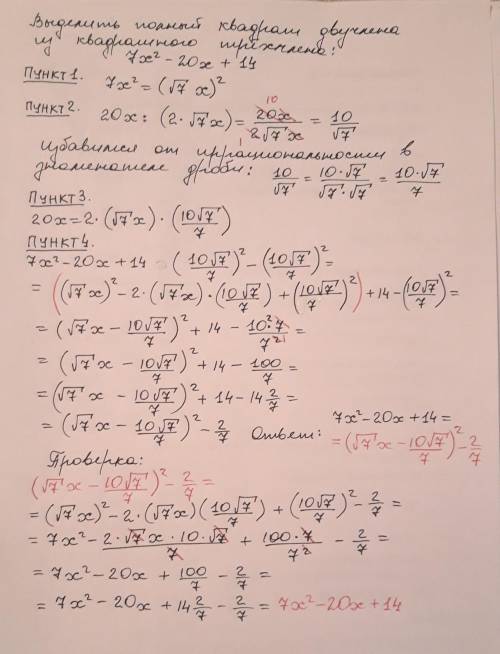 Выделить полный квадрат двучлена
из квадратного трёхчлена:
7x² - 20x + 14
Пункт 1. 7x² = (√7 x)²
Пункт 2. 20x : (2·√7x) = 20x/2√7x = 10/√7
10
1
Избавимся от иррациональности в
знаменателе дроби: 10/√7 = 10·√7/√7·√7 = 10·√7/7
Пункт 3.
20x = 2·(√7x)·(10√7/7)
Пункт 4.
7x² - 20x + 14 (10√7/7)² - (10√7/7)² =
= ((√7x)² - 2·(√7x)·(10√7/7) + (10√7/7)²) + 14 - (10√7/7)² =
= (√7x - 10√7/7)² + 14 - 10²·7/7²¹ =
= (√7x - 10√7/7)² + 14 - 100/7 =
= (√7x - 10√7/7)² + 14 - 14 2/7 =
= (√7x - 10√7/7)² - 2/7 Ответ: 7x² - 20x + 14 =
= (√7x - 10√7/7)² - 2/7
Проверка:
(√7x - 10√7/7)² - 2/7 =
= (√7x)² - 2·(√7x)(10√7/7) + (10√7/7)² - 2/7 =
= 7x² - 2·√7x·10·√7/7 + 100·7/7² - 2/7 =
= 7x² - 20x + 100/7 - 2/7 =
= 7x² - 20x + 14 2/7 - 2/7 = 7x² - 20x + 14